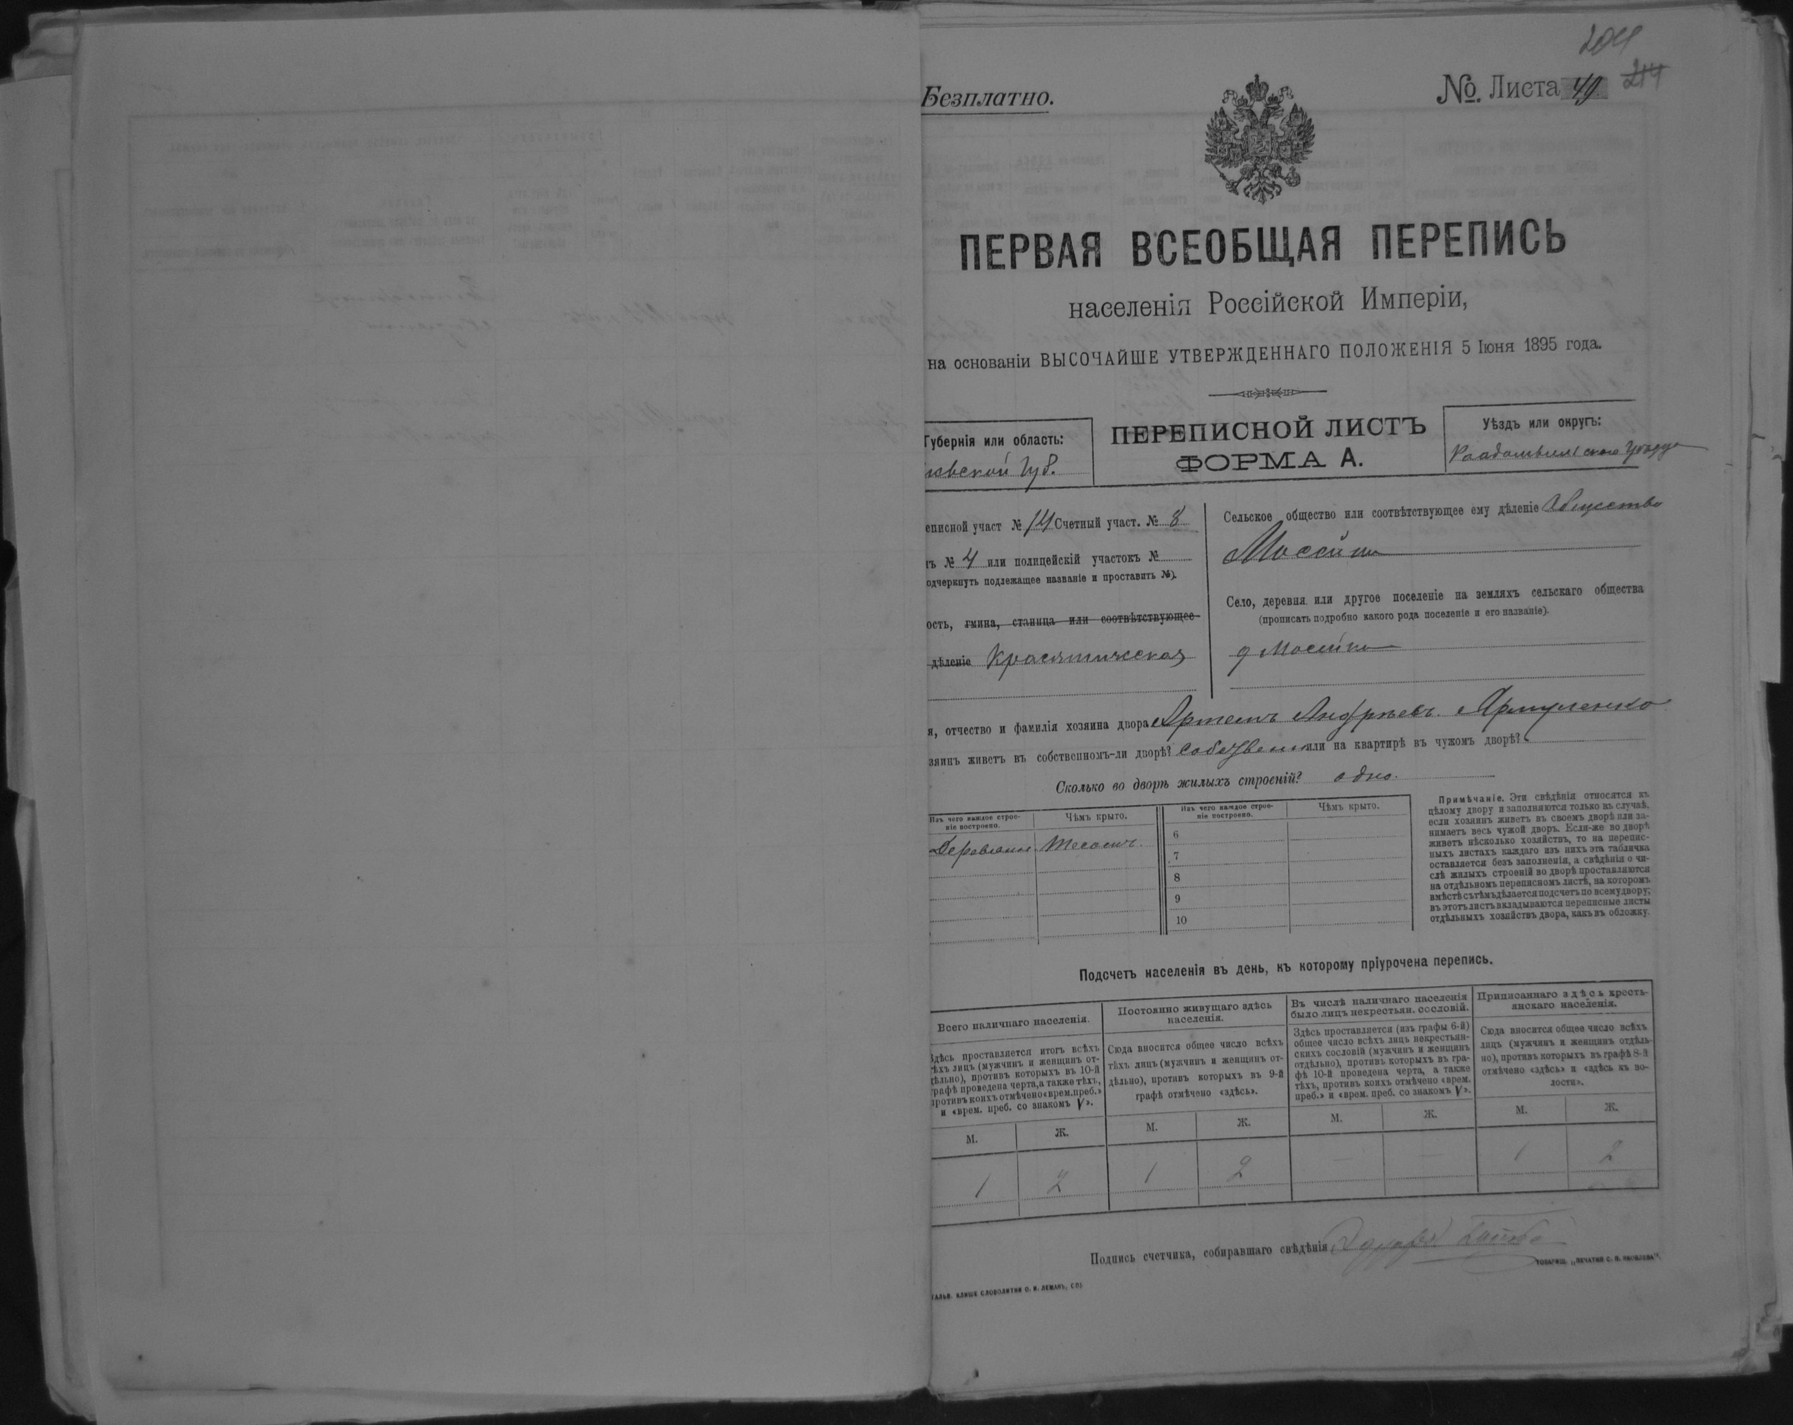 204
Безплатно.
№. Листа 49 214
ПЕРВАЯ ВСЕОБЩАЯ ПЕРЕПИСЬ
населенія Россійской Имперіи,
на основаніи ВЫСОЧАЙШЕ УТВЕРЖДЕННАГО ПОЛОЖЕНІЯ 5 Іюня 1895 года.
Губернія или область:
іевской Губ.
ПЕРЕПИСНОЙ ЛИСТЪ
ФОРМА А.
Уѣздъ или округъ:
еписной участ № 14 Счетный участ. № 8
ъ № 4 или полицейскій участокъ №
одчеркнуть подлежащее названіе и проставить №).
ость, гмина, станица или соотвѣтствующее
дѣленіе Красятичская
Сельское общество или соотвѣтствующее ему дѣленіе Общество
Мосейки
Село, деревня или другое поселеніе на земляхъ сельскаго общества
(прописать подробно какого рода поселеніе и его названіе).
д Мосейки
я, отчество и фамилія хозяина двора Артемъ Андреевъ Ярмуленко
зяинъ живетъ въ собственномъ-ли дворѣ? собствен или на квартирѣ въ чужомъ дворѣ?
Сколько во дворѣ жилыхъ строеній? одно.
Изъ чего каждое строе-
ніе построено.
Чѣмъ крыто.
Изъ чего каждое строе-
ніе построено.
Чѣмъ крыто.
Деревяное Тесомъ.
6
7
8
9
10
Примѣчаніе. Эти свѣдѣнія относятся къ
цѣлому двору и заполняются только въ случаѣ,
если хозяинъ живетъ въ своемъ дворѣ или за-
нимаетъ весь чужой дворъ. Если-же во дворѣ
живетъ нѣсколько хозяйствъ, то на перепис-
ныхъ листахъ каждаго изъ нихъ эта табличка
оставляется безъ заполненія, а свѣдѣнія о чи-
слѣ жилыхъ строеній во дворѣ проставляются
на отдѣльномъ переписномъ листѣ, на которомъ
вмѣстѣ съ тѣмъ дѣлается подсчетъ по всему двору;
въ этотъ листъ вкладываются переписные листы
отдѣльныхъ хозяйствъ двора, какъ въ обложку.
Подсчетъ населенія въ день, къ которому пріурочена перепись.
Всего наличнаго населенія.
Здѣсь проставляется итогъ всѣхъ
тѣхъ лицъ (мужчинъ и женщинъ от-
дѣльно), противъ которыхъ въ 10-й
графѣ проведена черта, а также тѣхъ,
противъ коихъ отмѣчено «врем. преб.»
и «врем. преб. со знакомъ V».
Постоянно живущаго здѣсь
населенія.
Сюда вносится общее число всѣхъ
тѣхъ лицъ (мужчинъ и женщинъ от-
дѣльно), противъ которыхъ въ 9-й
графѣ отмѣчено «здѣсь».
Въ числѣ наличнаго населенія
было лицъ некрестьян. сословій.
Здѣсь проставляется (изъ графы 6-й)
общее число всѣхъ лицъ некрестьян-
скихъ сословій (мужчинъ и женщинъ
отдѣльно), противъ которыхъ въ гра-
фѣ 10-й проведена черта, а также
тѣхъ, противъ коихъ отмѣчено «врем.
преб.» и «врем. преб. со знакомъ V».
Приписаннаго здѣсь кресть-
янскаго населенія.
Сюда вносится общее число всѣхъ
лицъ (мужчинъ и женщинъ отдѣль-
но), противъ которыхъ въ графѣ 8-й
отмѣчено «здѣсь» и «здѣсь къ во-
лости».
М. Ж. М. Ж. М. Ж. М. Ж.
1 2 1 2 — — 1 2
Подпись счетчика, собиравшаго свѣдѣнія
ТОВАРИЩ. „ПЕЧАТНЯ С. П. ЯКОВЛЕВА“.
ГАЛЬВ. КЛИШЕ СЛОВОЛИТНИ О. И. ЛЕМАНЪ, СПБ